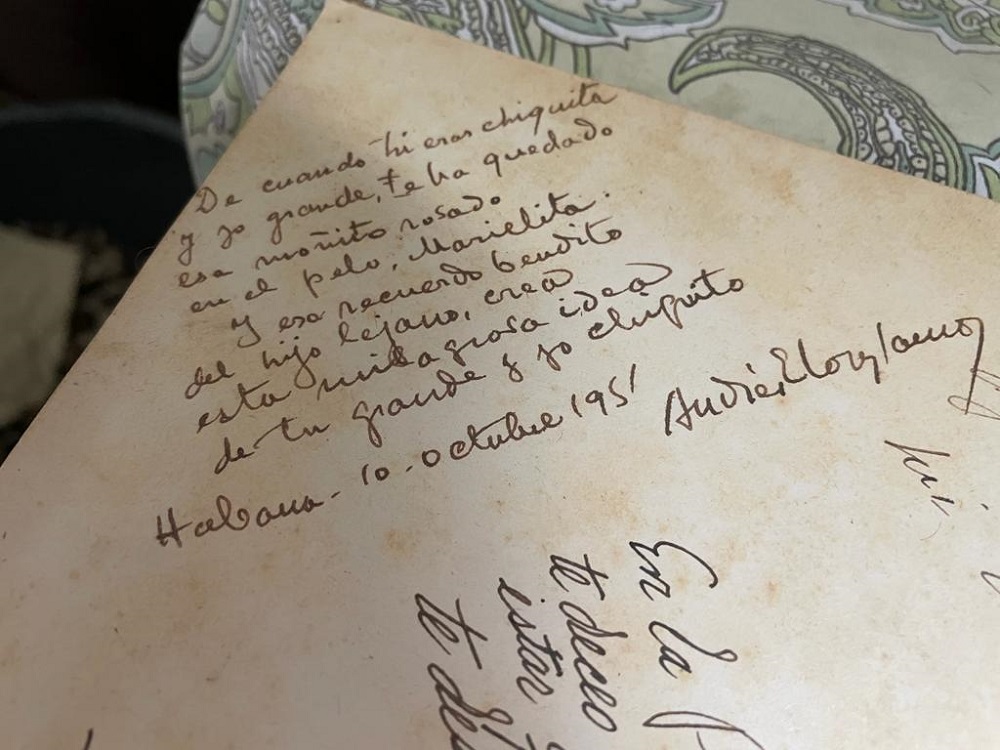 De cuando tú eras chiquita
y yo grande, te ha quedado
ese moñito rosado
en el pelo, Marielita.
Y ese recuerdo bendito
del hijo lejano, crea
esta milagrosa idea
de tu grande y yo chiquito
Habana - 10 - octubre 1951
Andrés Eloy Blanco
En la
te deceo
estar
te de